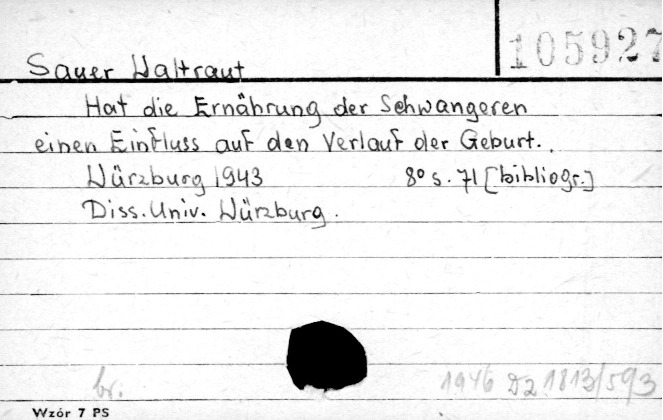 105927
Sauer Waltraut
Hat die Ernährung der Schwangeren
einen Einfluss auf den Verlauf der Geburt.
Würzburg 1943 8° s. 71 [bibliogr.]
Diss. Univ. Würzburg.
br. 1946 Dz 1813/593
Wzór 7 PS